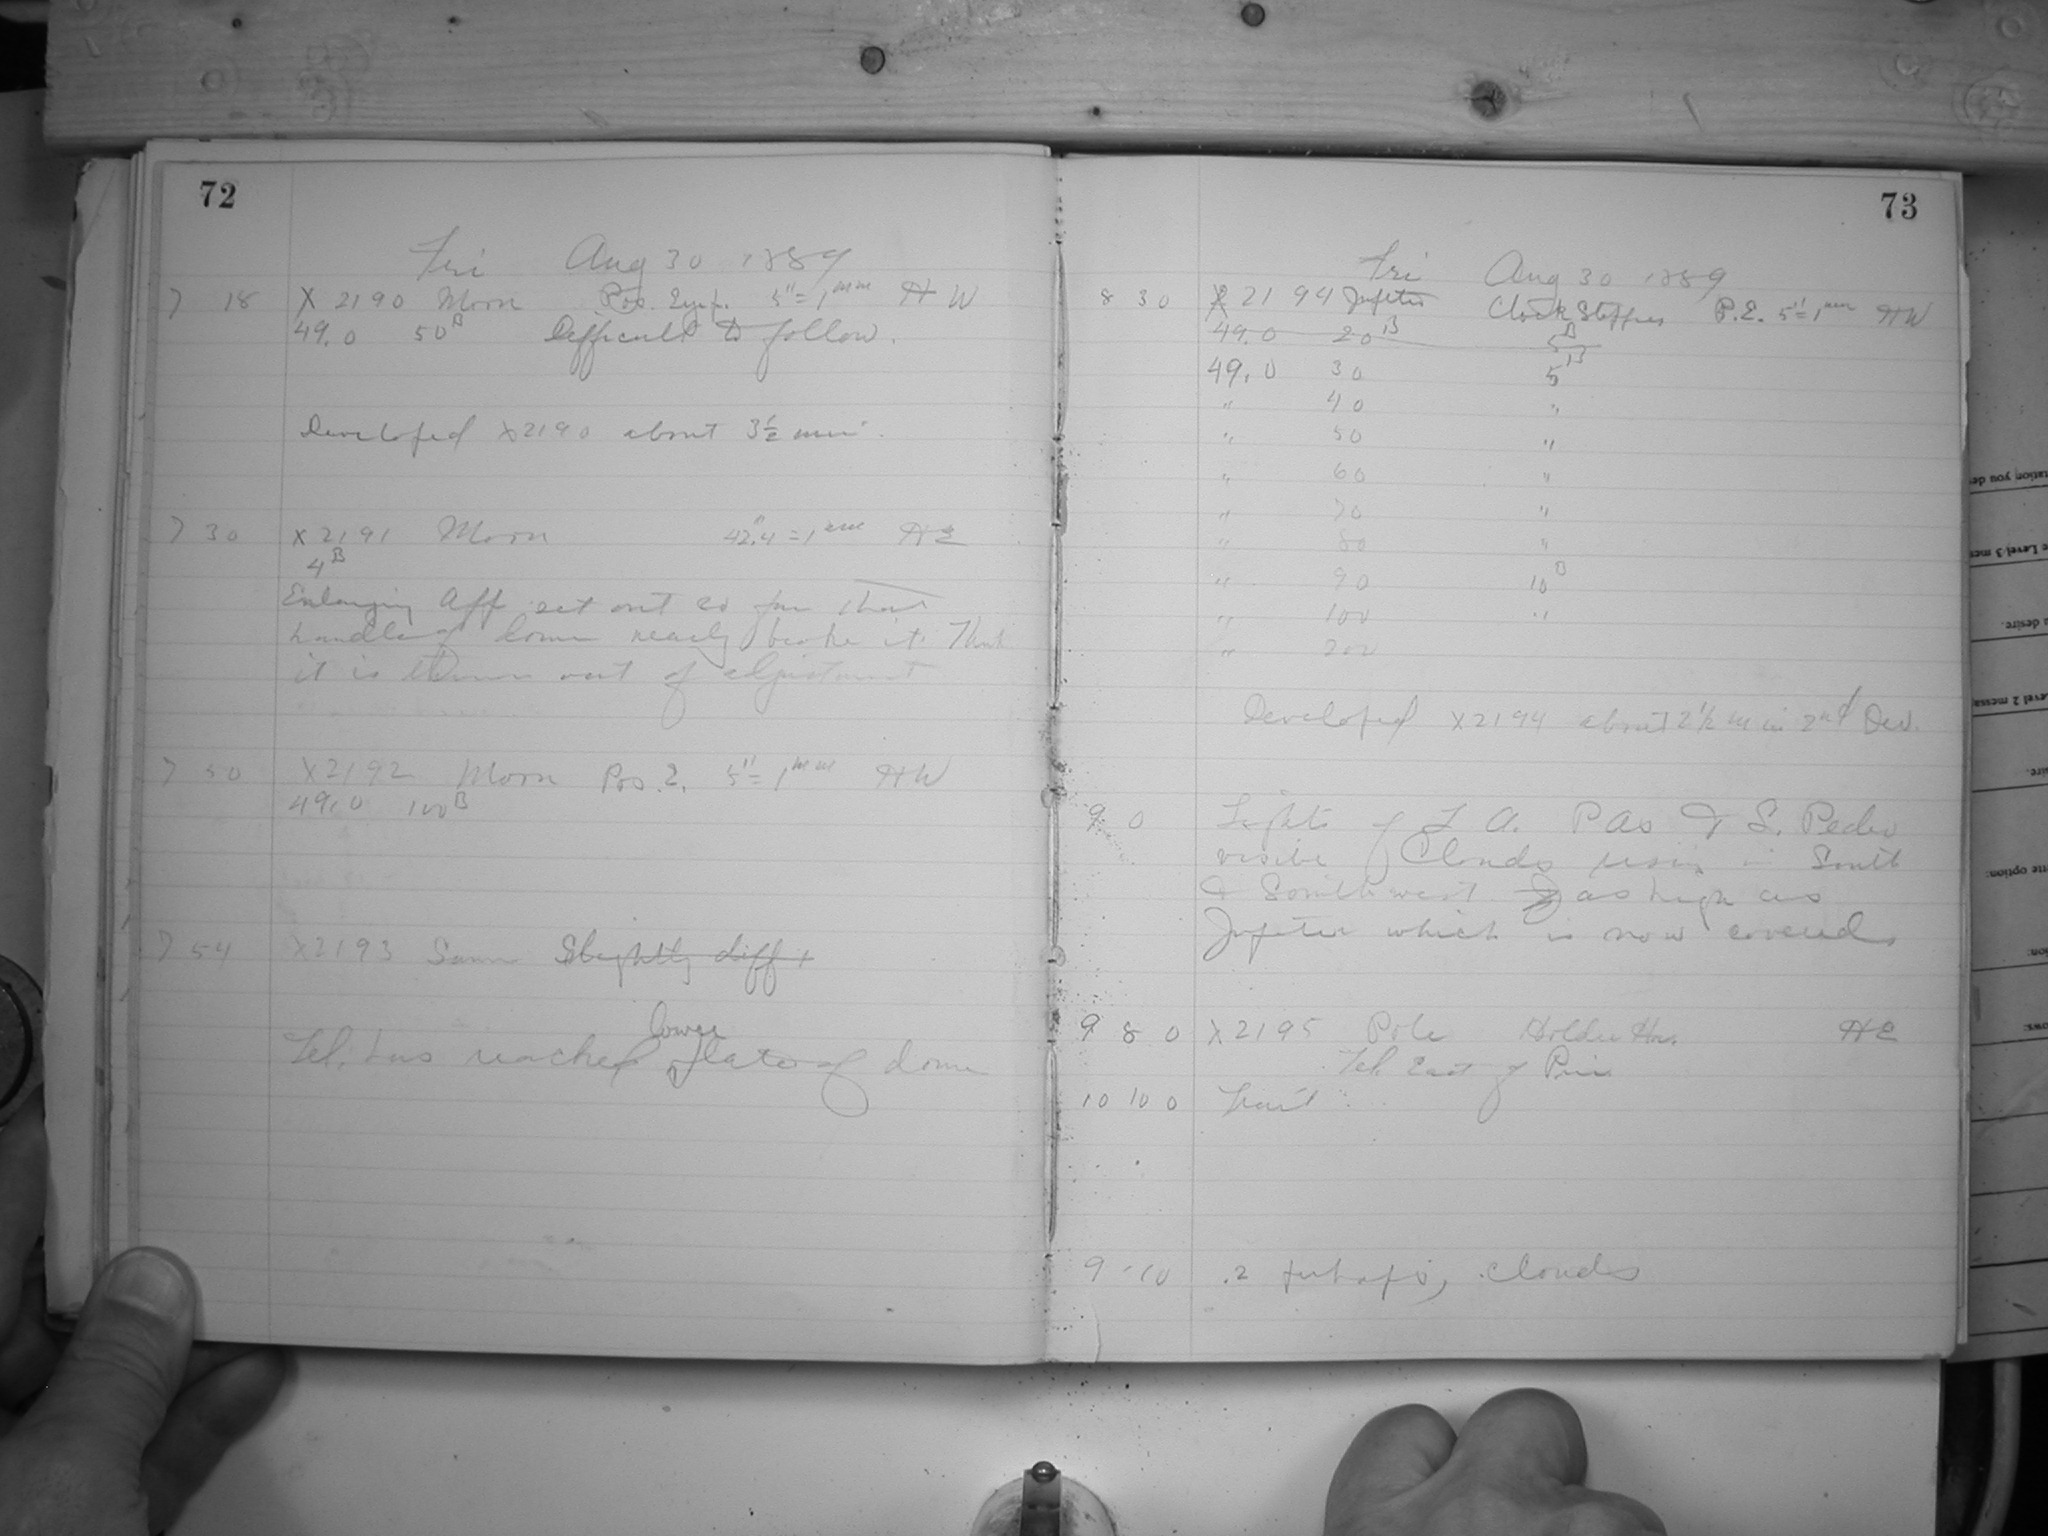 72
Fri Aug 30 1889
7 18 X 2190 Moon Pos. 5" = 1mm HW
49.0 50B Difficult to follow.
Developed X2190 about 3½ min.
7 30 X 2191 Moon 42".4 = 1mm HE
4B
Enlarging App set out so far that
handling nearly broke it. Think
it is thrown out of adjustment
7 50 X2192 Moon Pos. E. 5" = 1mm HW
49.0 100B
7 54 X2193 Same Slightly diff.
lower
Tel. has reached plate of dome
73
Fri Aug 30 1889
8 30 X 2194 Jupiter Clock Stopped P.E. 5" = 1mm HW
49.0 20B 5B
49.0 30 5B
" 40 "
" 50 "
" 60 "
" 70 "
" 80 "
" 90 10B
" 100 "
" 200
Developed X2194 about 2½ min 2nd Dev.
9 0 Lights of L A. Pas & S. Pedro
visible Clouds in South
& Southwest as high as
Jupiter which is now covered
9 8 0 X2195 Pole Holder Hor. HE
Tel. East of Pier
10 10 0
9-10 .2 perhaps, clouds
tation you de
e Level 3 mes
desire.
evel 2 messa
ire.
tte option:
ion:
ows: